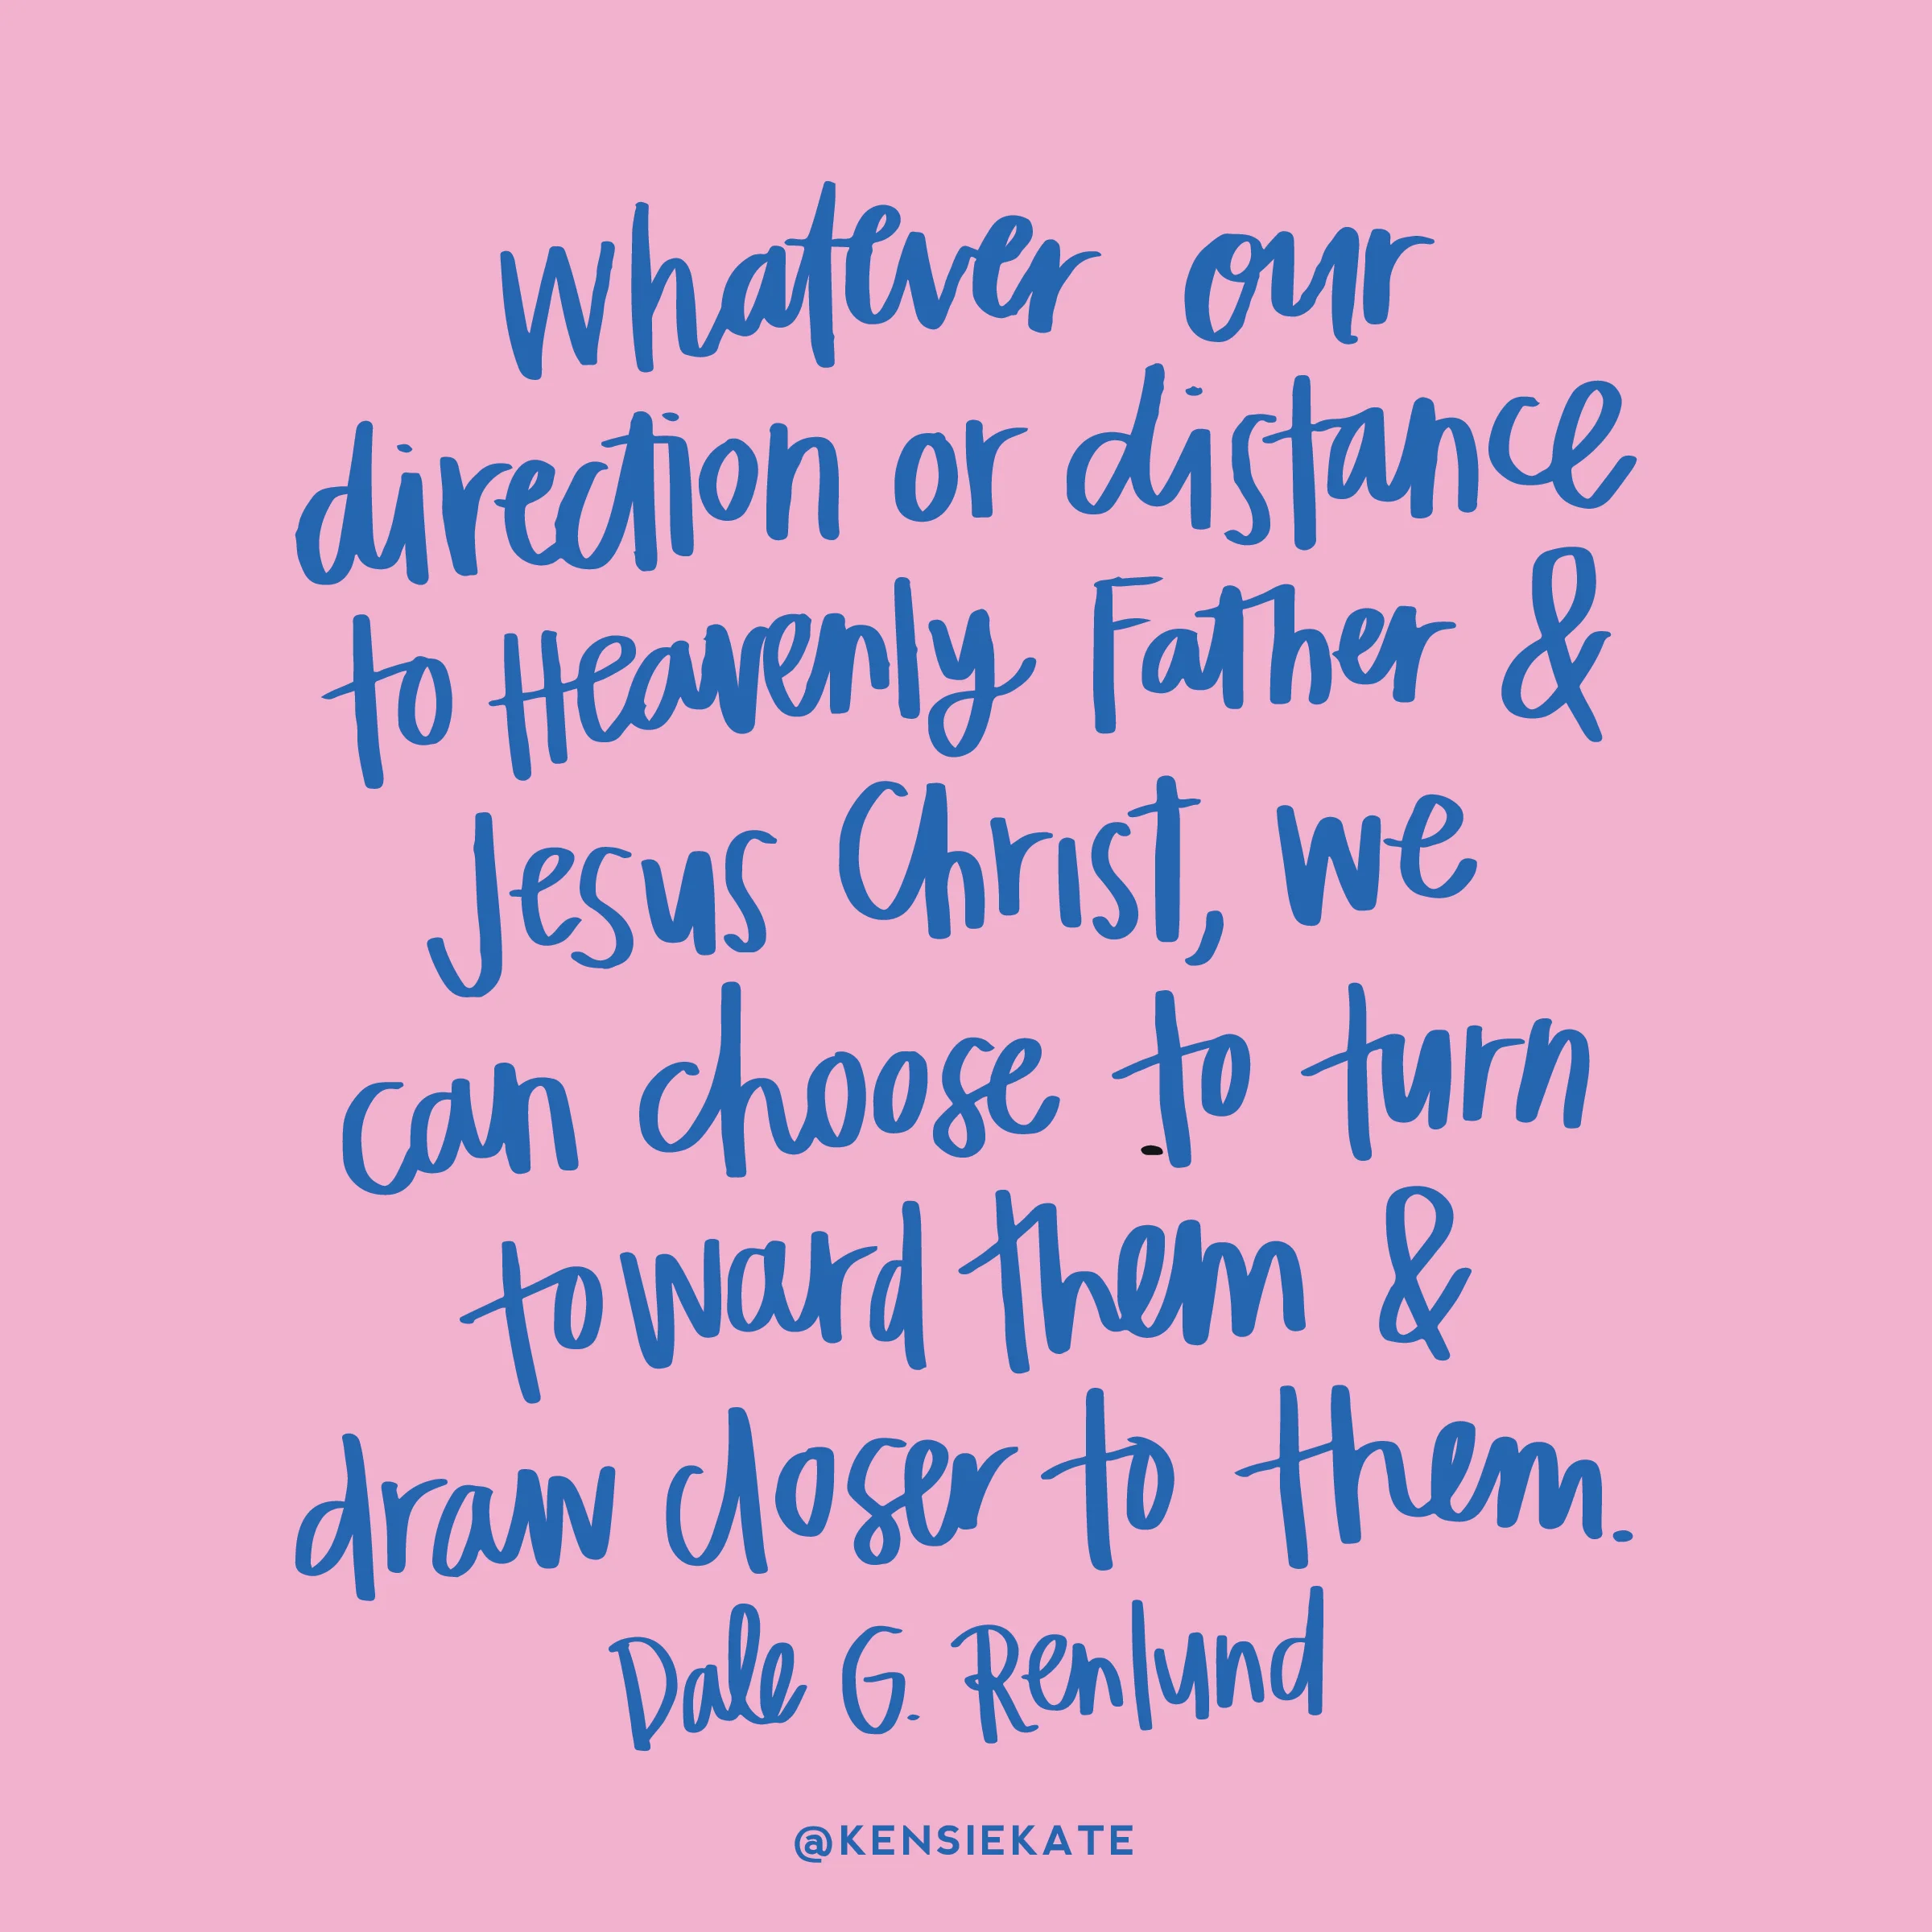 Whatever our
direction or distance
to Heavenly Father &
Jesus Christ, we
can choose to turn
toward them &
draw closer to them.
Dale G. Renlund
@KENSIEKATE